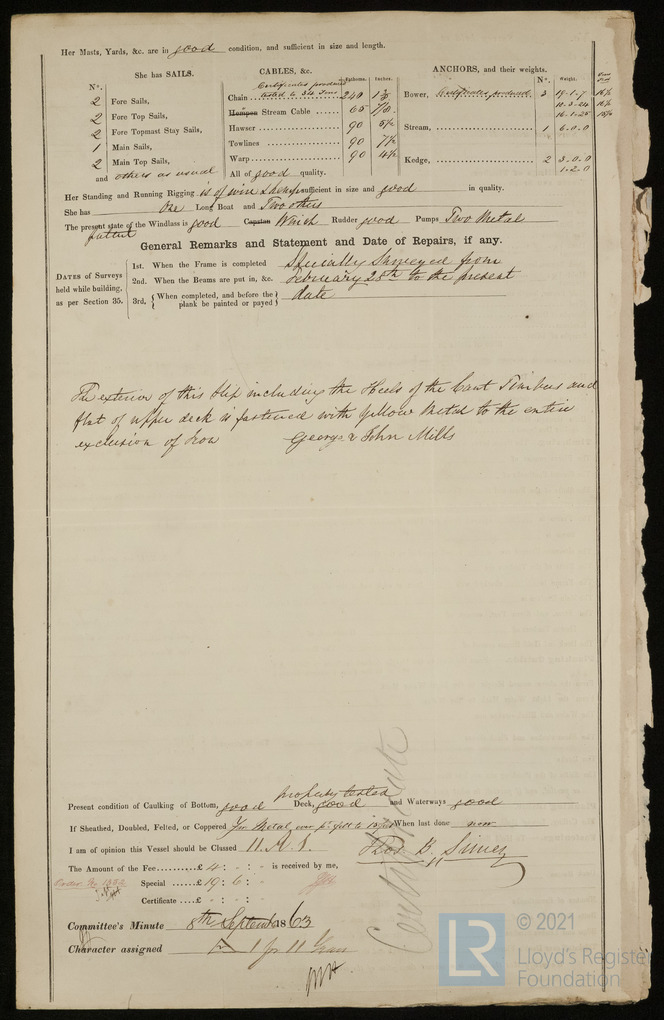 Her Masts, Yards, &c. are in good condition, and sufficient in size and length.
She has SAILS.
N°.
2 Fore Sails,
2 Fore Top Sails,
2 Fore Topmast Stay Sails,
1 Main Sails,
2 Main Top Sails,
and others as usual
CABLES, &c.
Fathoms. Inches.
Certificates produced
tested to 34 Tons
Chain 240 1 3/8
Hempen Stream Cable 65 7/8
Hawser 90 5 1/2
Towlines 90 7 1/2
Warp 90 4 1/2
All of good quality.
ANCHORS, and their weights.
N°. Weight.
Bower, Certificates produced 3
16.1.25
Stream, 1 6.0.0
Kedge, 2 3.0.0
1.2.0
Her Standing and Running Rigging is of wire & hemp sufficient in size and good in quality.
She has One Long Boat and Two others
The present state of the Windlass is good Capstan Winch Rudder good Pumps Two Metal
patent
General Remarks and Statement and Date of Repairs, if any.
DATES of Surveys
held while building,
as per Section 35.
1st. When the Frame is completed
2nd. When the Beams are put in, &c.
3rd, { When completed, and before the
plank be painted or payed }
Specially Surveyed from
February 25th to the present
date
The exterior of this Ship including the Heels of the Cant Timbers and
flat of upper deck is fastened with Yellow Metal to the entire
exclusion of Iron George & John Mills
properly tested
Present condition of Caulking of Bottom, good Deck, good and Waterways good
If Sheathed, Doubled, Felted, or Coppered Yw Metal over felt When last done new
I am of opinion this Vessel should be Classed 11.A.1.
Thos B. Simey
The Amount of the Fee......£ 4 : - : - is received by me,
Special ......£ 19 : 6 : -
Certificate ......£ - : - : -
Certificate
Committee's Minute 8th September 1863
Character assigned A 1 for 11 Years
© 2021
LR
Lloyd's Register
Foundation